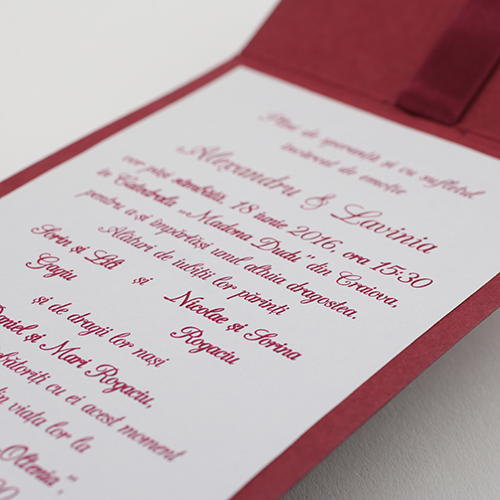 Plini de speranță și cu sufletul
încărcat de emoție
Alexandru & Lavinia
vor păși sâmbătă, 18 iunie 2016, ora 15:30
în Catedrala „Madona Dudu" din Craiova,
pentru a-și împărtăși unul altuia dragostea.
Alături de iubiții lor părinți
Sorin și Lili Gogiu și Nicolae și Sorina Rogaciu
și de dragii lor nași
Daniel și Mari Rogaciu,
cu ei acest moment
din viața lor la
"Oltenia"